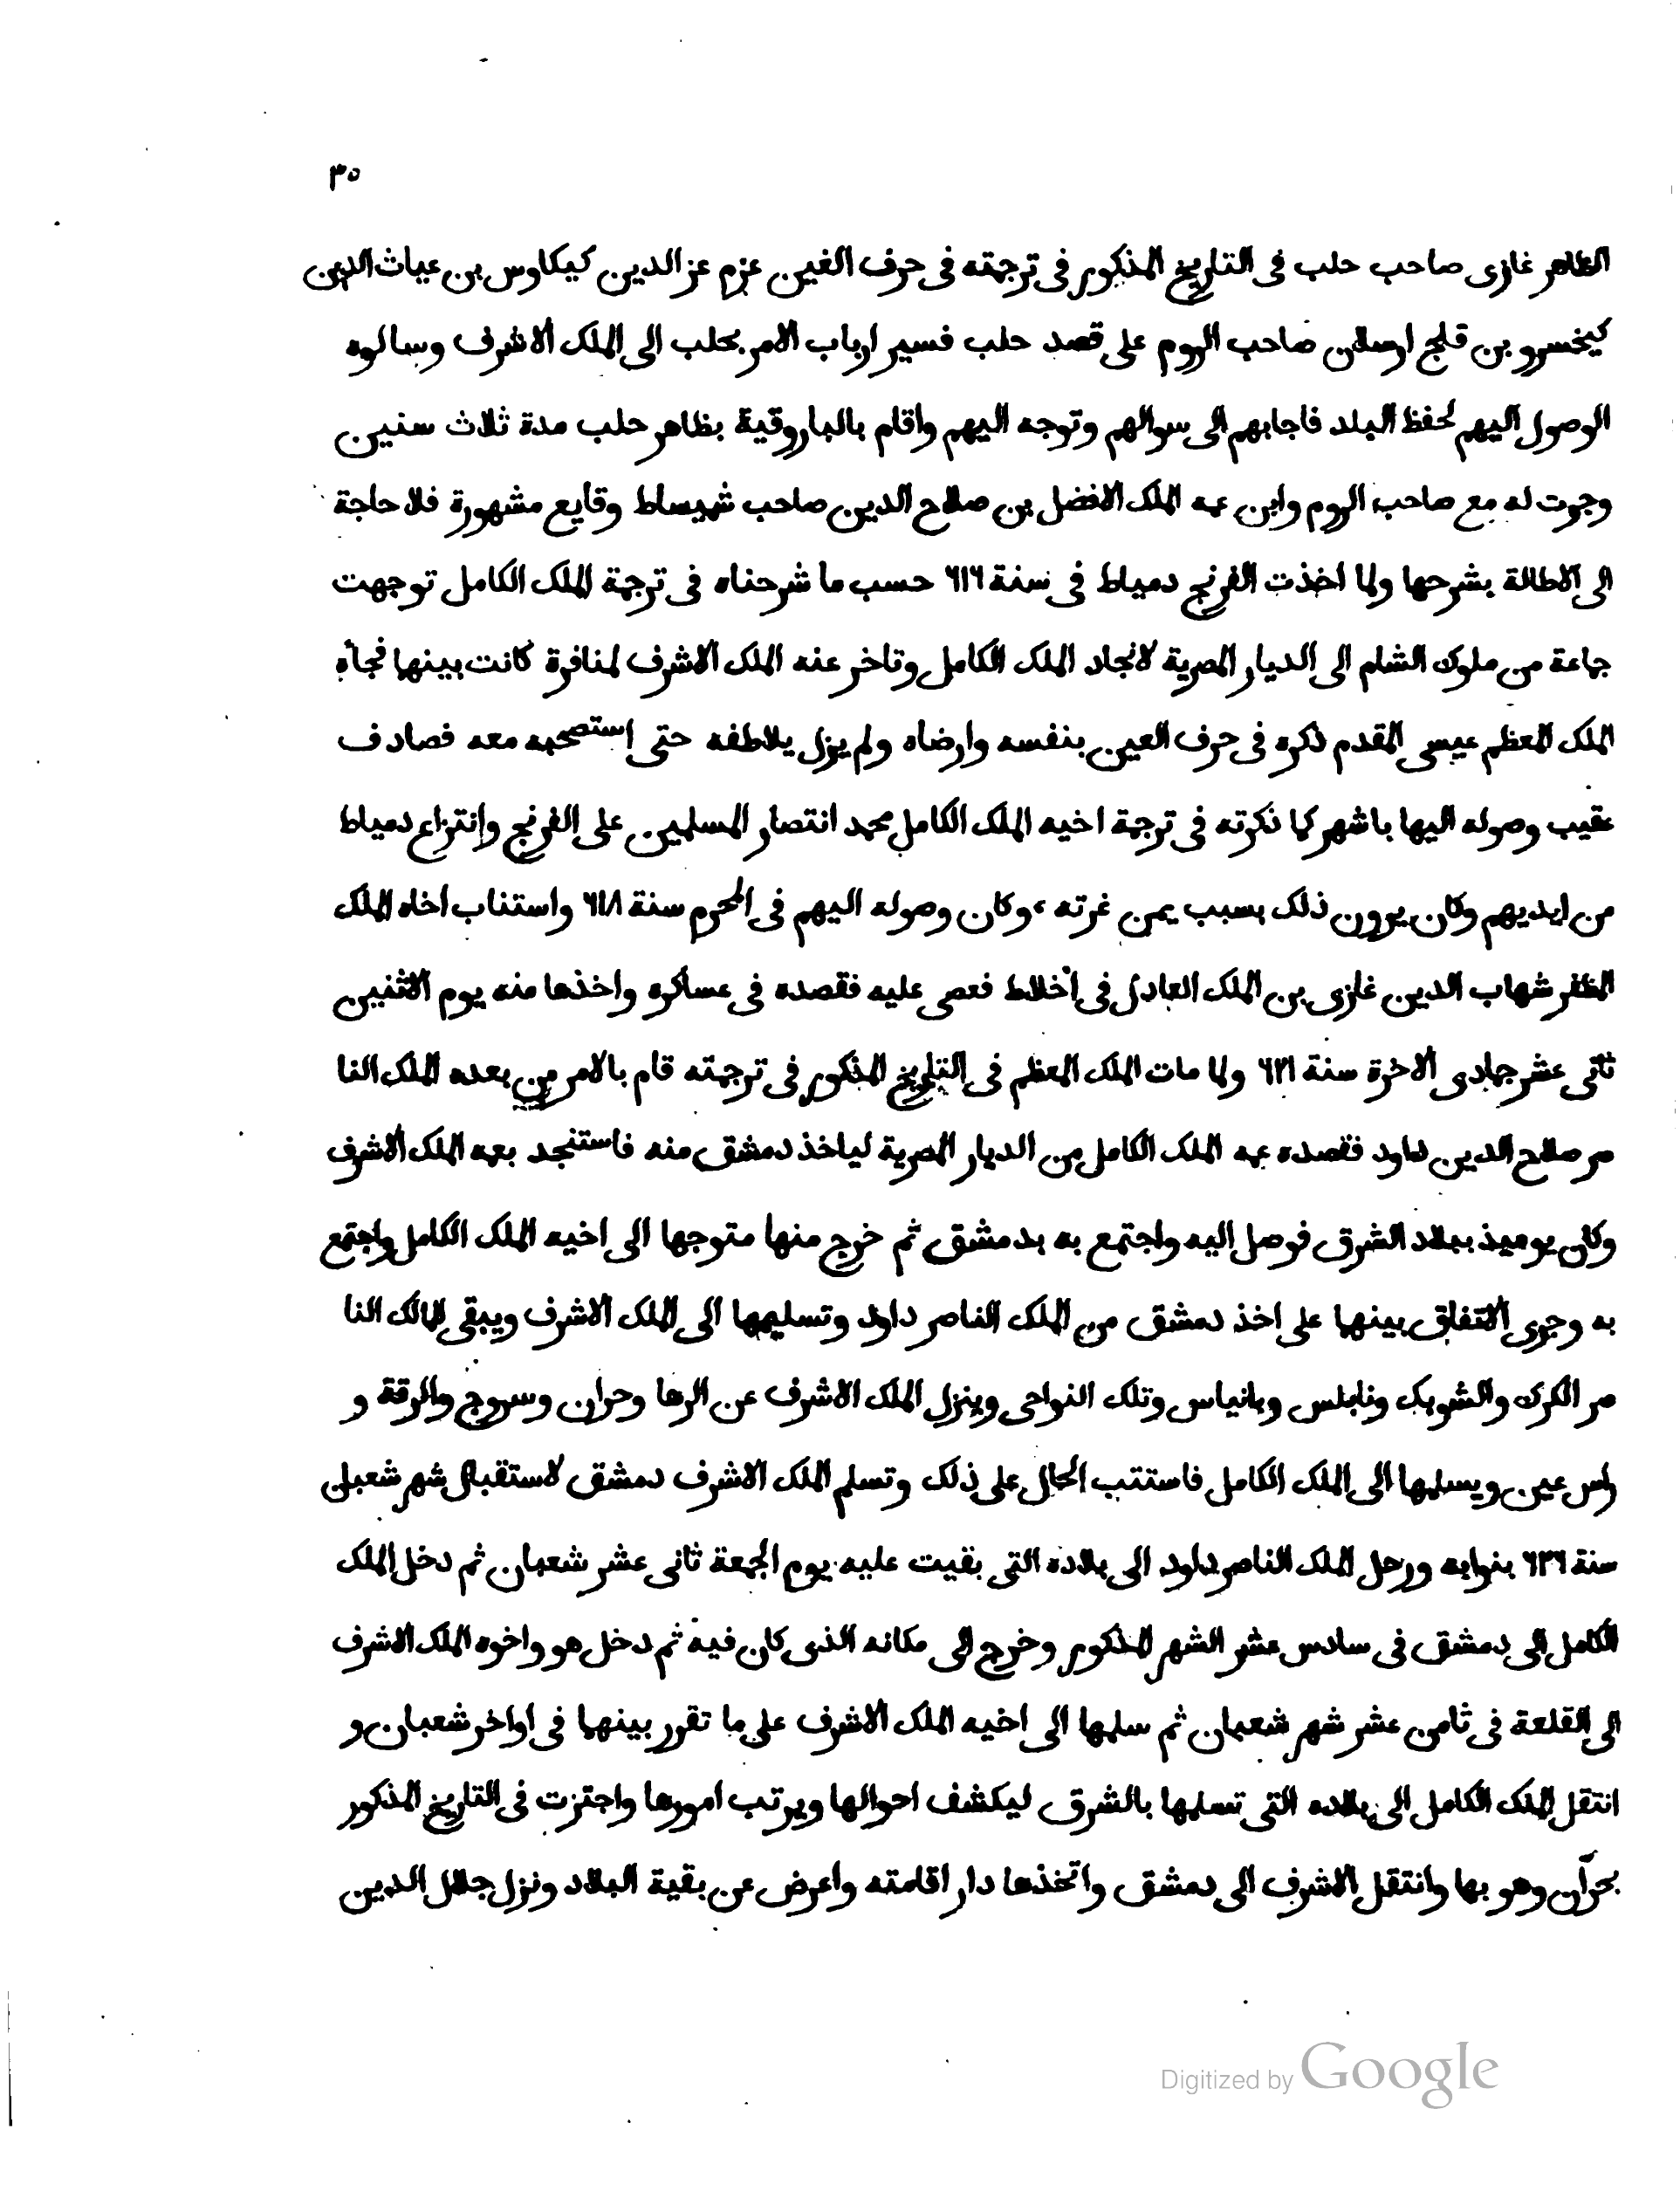 ٣٥
الظاهر غازى صاحب حلب فى التاريخ المذكور فى ترجمته فى حرف الغين عزم عز الدين كيكاوس بن غياث الدين
كيخسرو بن قليج ارسلان صاحب الروم على قصد حلب فسير ارباب الامر بحلب الى الملك الاشرف وسالوه
الوصول اليهم لحفظ البلد فاجابهم الى سوالهم وتوجه اليهم واقام بالباروقية بظاهر حلب مدة ثلاث سنين
وجرت له مع صاحب الروم وابن عمه الملك الافضل بن صلاح الدين صاحب شميساط وقايع مشهورة فلا حاجة
الى الاطالة بشرحها ولما اخذت الفرنج دمياط فى سنة ٦١٦ حسب ما شرحناه فى ترجمة الملك الكامل توجهت
جماعة من ملوك الشام الى الديار المصرية لانجاد الملك الكامل وتاخر عنه الملك الاشرف لمنافرة كانت بينهما فجأه
الملك المعظم عيسى المقدم ذكره فى حرف العين بنفسه وارضاه ولم يزل يلاطفه حتى استصحبه معه فصادف
عقيب وصوله اليها باشهر كما ذكرته فى ترجمة اخيه الملك الكامل محمد انتصار المسلمين على الفرنج وانتزاع دمياط
من ايديهم وكان يرون ذلك بسبب يمن غرته ، وكان وصوله اليهم فى المحرم سنة ٦١٨ واستناب اخاه الملك
المظفر شهاب الدين غازى بن الملك العادل فى اخلاط فعصى عليه فقصده فى عساكره واخذها منه يوم الاثنين
ثانى عشر جمادى الاخرة سنة ٦٢١ ولما مات الملك المعظم فى التاريخ المذكور فى ترجمته قام بالامر من بعده الملك النا
صر صلاح الدين داود فقصده عمه الملك الكامل من الديار المصرية لياخذ دمشق منه فاستنجد بعمه الملك الاشرف
وكان يوميذ ببلاد الشرق فوصل اليه واجتمع به بدمشق ثم خرج منها متوجها الى اخيه الملك الكامل واجتمع
به وجرى الاتفاق بينهما على اخذ دمشق من الملك الناصر داود وتسليمها الى الملك الاشرف ويبقى للمالك النا
صر الكرك والشوبك ونابلس وبانياس وتلك النواحى وينزل الملك الاشرف عن الرها وحران وسروج والرقة و
راس عين ويسلمها الى الملك الكامل فاستتب الحال على ذلك وتسلم الملك الاشرف دمشق لاستقبال شهر شعبان
سنة ٦٢٦ بنوابه ورحل الملك الناصر داود الى بلاده التى بقيت عليه يوم الجمعة ثانى عشر شعبان ثم دخل الملك
الكامل الى دمشق فى سادس عشر الشهر المذكور وخرج الى مكانه الذى كان فيه ثم دخل هو واخوه الملك الاشرف
الى القلعة فى ثامن عشر شهر شعبان ثم سلمها الى اخيه الملك الاشرف على ما تقرر بينهما فى اواخر شعبان و
انتقل الملك الكامل الى بلاده التى تسلمها بالشرق ليكشف احوالها ويرتب امورها واجتزت فى التاريخ المذكور
بحرآن وهو بها وانتقل الاشرف الى دمشق واتخذها دار اقامته واعرض عن بقية البلاد ونزل جلال الدين
Digitized by Google